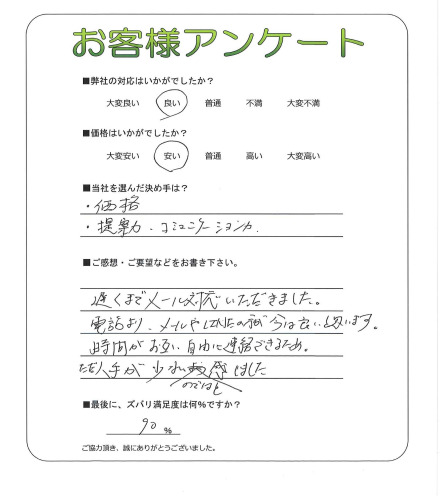 お客様アンケート
■弊社の対応はいかがでしたか？
大変良い 良い 普通 不満 大変不満
■価格はいかがでしたか？
大変安い 安い 普通 高い 大変高い
■当社を選んだ決め手は？
・価格
・提案力、コミュニケーション力。
■ご感想・ご要望などをお書き下さい。
遅くまでメール対応いただきました。
電話より、メールやLINEの方が今は良いと思います。
時間がお互い自由に連絡できるため。
ただ人手が少ない 感じました
のではと
■最後に、ズバリ満足度は何％ですか？
90 ％
ご協力頂き、誠にありがとうございました。